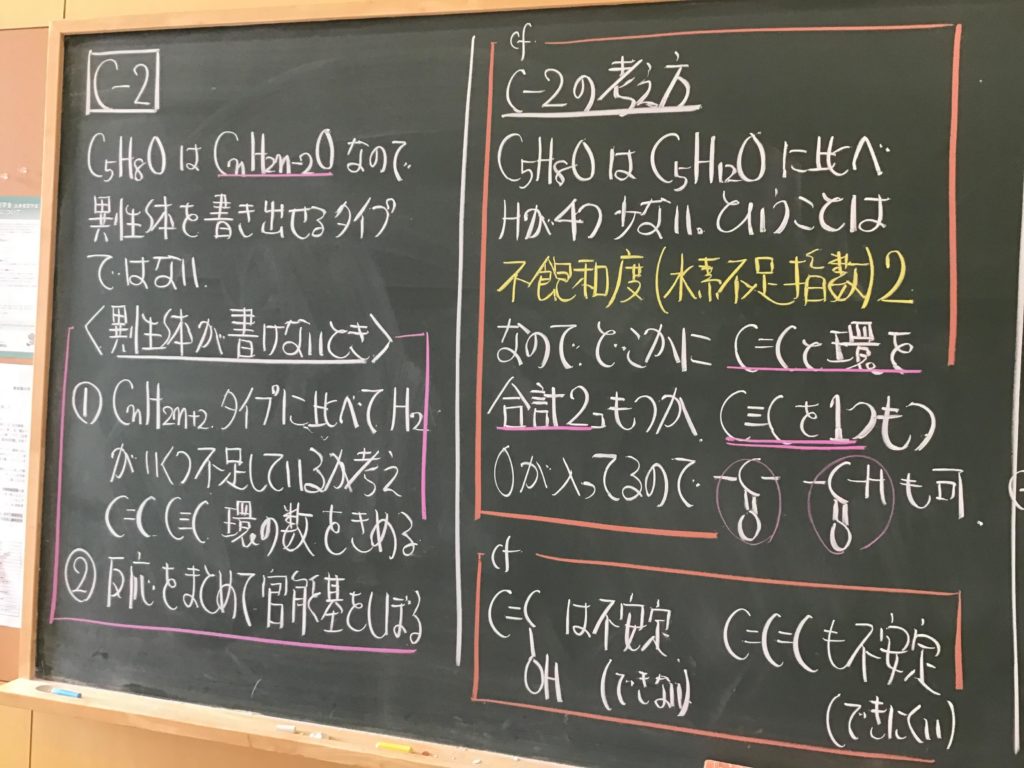 C-2
C5H8O は CnH2n-2O なので
異性体を書き出せるタイプ
ではない.
<異性体が書けないとき>
① CnH2n+2 タイプに比べて H2
がいくつ不足しているか考え
C=C C≡C 環の数をきめる
② 反応をまとめて官能基をしぼる
cf
C-2の考え方
C5H8O は C5H12O に比べ
Hが4つ少ない。ということは
不飽和度(水素不足指数)2
なので、どこかに C=Cと環を
合計2コもつか、C≡Cを1つもつ
Oが入ってるので -C- -C-H も可.
O O
cf
C=C は不安定 C=C=Cも不安定
OH (できない) (できにくい)